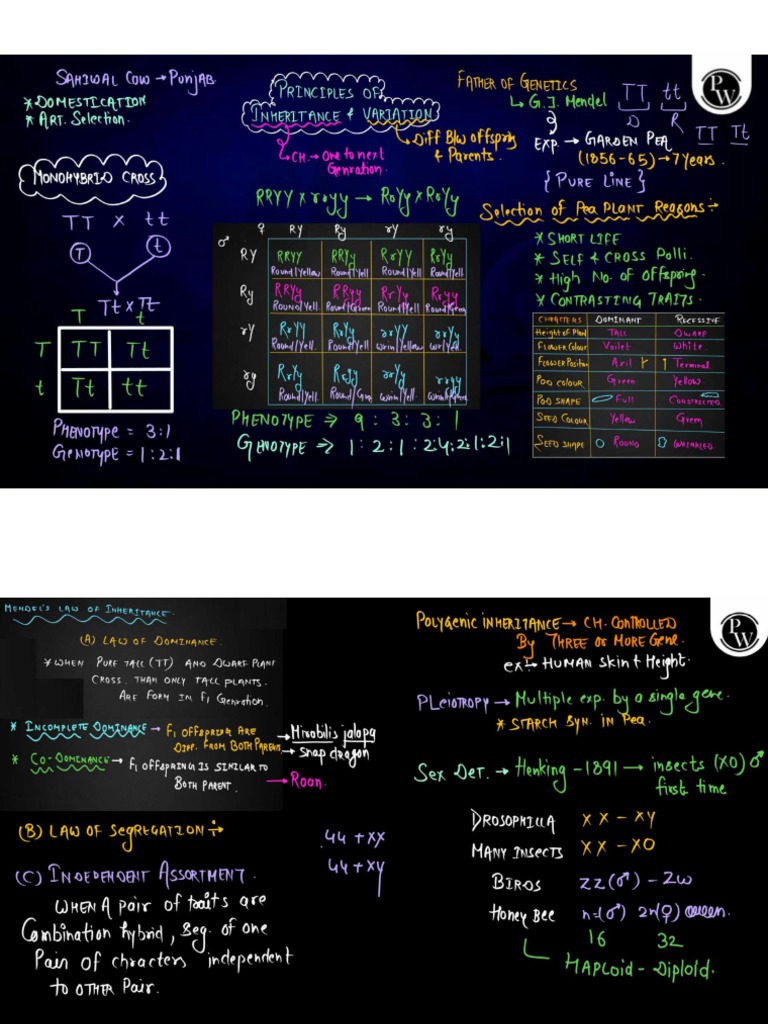 SAHIWAL COW → PUNJAB
* DOMESTICATION
* ART. Selection.
PRINCIPLES OF
INHERITANCE & VARIATION
CH. → One to next
Genration.
Diff B/w offspring
& Parents.
FATHER OF GENETICS
G. J. Mendel
EXP. → GARDEN PEA
(1856-65) → 7 Years.
{PURE LINE}
TT tt
D R
TT Tt
PW
MONOHYBRID CROSS
TT x tt
T t
Tt x Tt
T t
T TT Tt
t Tt tt
PHENOTYPE = 3:1
GENOTYPE = 1:2:1
RRYY x rryy → RrYy x RrYy
♀ RY Ry rY ry
♂
RY RRYY RRYy RrYY RrYy
Round/Yellow Round/Yell Round/Yell Round/Yell
Ry RRYy RRyy RrYy Rryy
Round/Yell. Round/Green Round/Yell. Round/Green
rY RrYY RrYy rrYY rrYy
Round/Yell Round/Yell. Wrin/Yellow Wr/Yell.
ry RrYy Rryy rrYy rryy
Round/Yell. Round/Green Wrin/Yell. Wrin/Green
PHENOTYPE ⇒ 9 : 3 : 3 : 1
GENOTYPE ⇒ 1:2:1:2:4:2:1:2:1
Selection of Pea PLANT Reasons :-
* SHORT LIFE
* SELF & CROSS Polli.
* High No. of Offspring.
* CONTRASTING TRAITS.
CHARACTERS DOMINANT RECESSIVE
Height of Plant TALL DWARF
FLOWER COLOUR Voilet White
FLOWER POSITION Axil Terminal
POD COLOUR Green Yellow
POD SHAPE Full CONSTRICTED
SEED COLOUR Yellow Green
SEED SHAPE ROUND WRINKLED
MENDEL'S LAW OF INHERITANCE.
(A) LAW OF DOMINANCE.
* WHEN PURE TALL (TT) AND DWARF PLANT
CROSS. THAN ONLY TALL PLANTS.
ARE FORM IN F1 Genration.
* INCOMPLETE DOMINANCE → F1 OFFSPRING ARE
DIFF. FROM BOTH PARENTS.
→ Mirabilis jalapa
→ Snap dragon
* CO-DOMINANCE → F1 OFFSPRING IS SIMILAR TO
BOTH PARENT.
→ Roan.
(B) LAW OF SEGREGATION :-
44 + XX
44 + XY
(C) INDEPENDENT ASSORTMENT.
WHEN A pair of traits are
Combination hybrid, Seg. of one
Pair of chracters independent
TO OTHER Pair.
Polygenic INHERITANCE → CH. CONTROLLED
By THREE OR MORE Gene.
ex → HUMAN Skin & Height.
PLeioTROPY → Multiple exp. by a single gene.
* STARCH Syn. in Pea.
Sex DeT. → Henking - 1891 → insects (XO) ♂
first time
DROSOPHILLA XX - XY
MANY INSECTS XX - XO
BIRDS ZZ (♂) - ZW
Honey Bee n=(♂) 2n(♀) Queen.
16 32
HAPLOID - Diploid.
PW